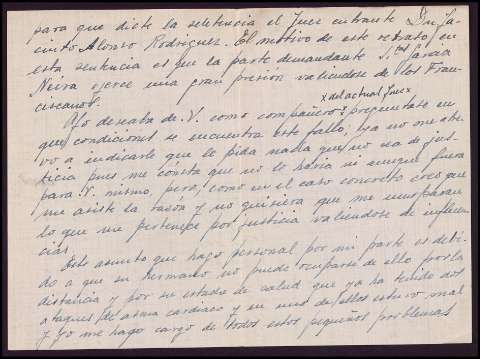 para que dicte la setetencia el Juez entrante Dn. Ja-
cinto Alonso Rodriguez. El motivo de este retrato en
esta sentencia es que la parte demandante Sta. Garcia
Neira ejerce una gran presión valiendose de los Fran-
ciscanos.
x del actual Juez x
Yo deseaba de V. como compañero x preguntase en
que condiciones se encuentra este fallo, yo no me atre-
vo a indicarle que le pida nada que no sea de jus-
ticia pues me consta que no lo haria ni aunque fuera
para V. mismo, pero, como en el caso concreto creo que
me asiste la razon y no quisiera que me
lo que me pertenece por justicia valiendose de influen-
cias.
Este asunto que hago personal por mi parte es debi-
do a que su hermano no puede ocuparse de ello por la
distancia y por su estado de salud que ya ha tenido dos
ataques de asma cardiaco y en uno de ellos estuvo mal
y yo me hago cargo de todos estos pequeños problemas